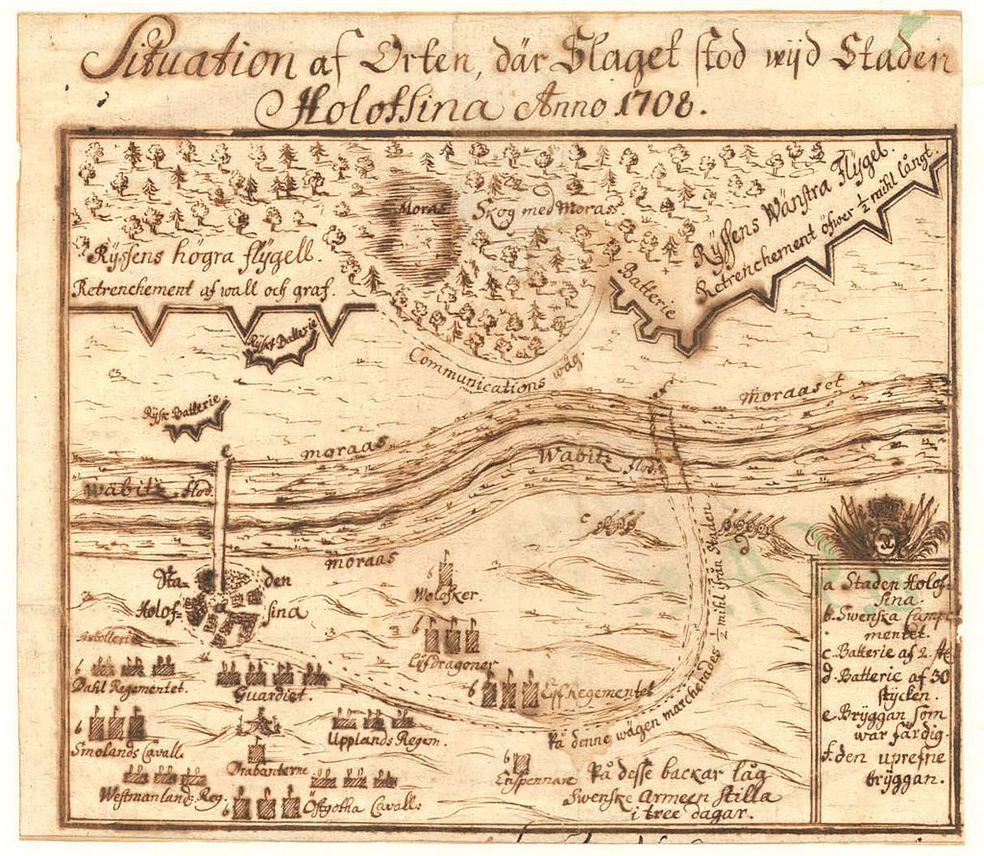 Situation af Orten, där Slaget stod wijd Staden
Holofsina Anno 1708.
Moras
Skog med Moras
Rÿssens Wänstra Flÿgel.
Retrenchement öfwer ½ mihl långt.
Rÿssens högra flÿgell.
Retrenchement af wall och graf.
Batterie
Rÿskt Batterie
Communications wäg
Rÿskt Batterie
e
moraas
moraaset
Wabitz flod.
Wabitz flod.
moraas
c
d
Sta-den
Holof-sina
½ mihl från Staden
b
Wolosker.
b
Lifdragoner
Artollerie
b
Dahl Regementet.
Guardiet.
b
Lifregementet
På denne wägen marcherades
b
Smolands Cavall:
Upplands Regem.
Drabanterne
b
Enspennare
På desse backar låg
Swenske Armeen stilla
i tree dagar.
Westmanlandz Reg.
b
Östgötha Cavall:
a Staden Holof-
sina
b. Swenska Campe-
mentet.
c. Batterie af 2. st
d. Batterie af 30
stÿcken.
e Brÿggan som
war färdig.
f. den uprefne
brÿggan.